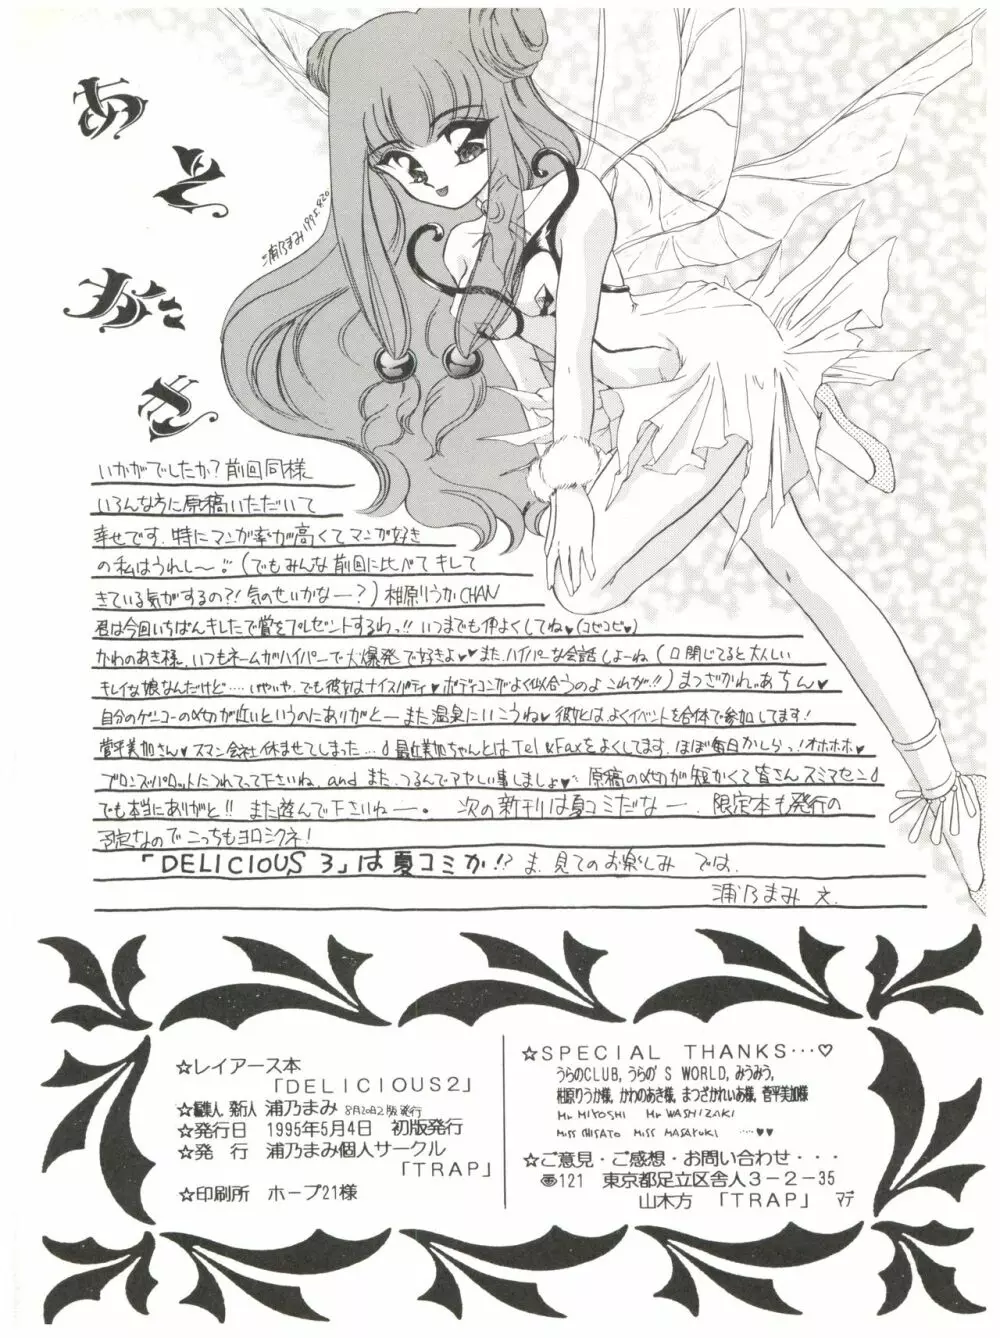 あとがき
浦乃まみ 1995.4.20
いかがでしたか?前回同様
いろんな方に原稿いただいて
幸せです。特にマンガ率が高くてマンガ好き
の私はうれし〜。(でもみんな前回に比べてキレて
きている気がするの?!気のせいかなー?)相原りうかCHAN
君は今回いちばんキレたで賞をプレゼントするわっ!!いつまでも仲よくしてね♥(コピコピ♥)
かわのあき様、いつもネームがハイパーで大爆発で好きよ♥♥また、ハイパーな会話しよーね(口閉じてると大人しい
キレイな娘なんだけど…いやいや、でも彼女はナイスバディ♥ボディコンがよく似合うのよこれが!!)まつざかれいあちん♥
自分のゲンコーの〆切が近いというのにありがとーまた温泉にいこうね♥彼女とは、よくイベントを合体で参加してます!
菅平美加さん♥スマン会社休ませてしまった…♪最近美加ちゃんとはTel&Faxをよくしてます。ほぼ毎日かしらっ!オホホホ♥
ブロンズパロットにつれてって下さいね、andまた、つるんでアヤしい事しましょ♥原稿の〆切が短かくて皆さんスミマセン♪
でも本当にありがと!!また遊んで下さいねー。次の新刊は夏コミだなー、限定本も発行の
予定なのでこっちもヨロシクネ!
「DELICIOUS 3」は夏コミか!?ま、見てのお楽しみ では、
浦乃まみ
☆レイアース本
「DELICIOUS2」
☆編集人 発行人 浦乃まみ 8月20日2版発行
☆発行日 1995年5月4日 初版発行
☆発 行 浦乃まみ個人サークル
「TRAP」
☆印刷所 ホープ21様
☆SPECIAL THANKS…♡
うらのCLUB, うらの'S WORLD, みうみう,
相原りうか様, かわのあき様, まつざかれいあ様, 菅平美加様
Mr MIYOSHI Mr WASHIZAKI
Miss CHISATO Miss MASAYUKI ……♥♥
☆ご意見・ご感想・お問い合わせ・・・
〠121 東京都足立区舎人3−2−35
山木方 「TRAP」 マデ